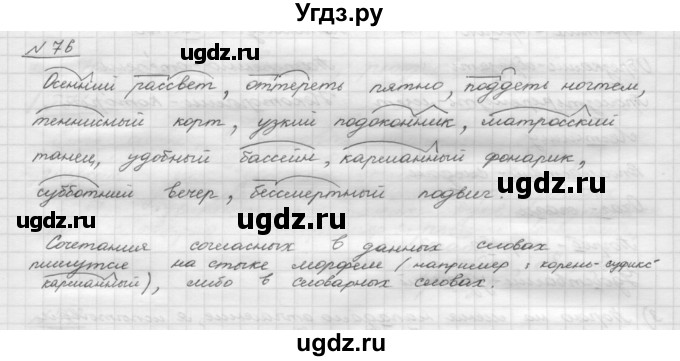 Угдз.ру
N 76
Осенний рассвет, оттереть пятно, поддеть ногтем,
теннисный корт, узкий подоконник, матросский
танец, удобный бассейн, карманный фонарик,
субботний вечер, бессмертный подвиг.
Сочетания согласных в данных словах
пишутся на стыке морфем (например: корень-суффикс
карманный), либо в словарных словах.
ugdz.ru
ugdz.ru
ugdz.ru
ugdz.ru
ugdz.ru
ugdz.ru
ugdz.ru
ugdz.ru
Угдз.ру